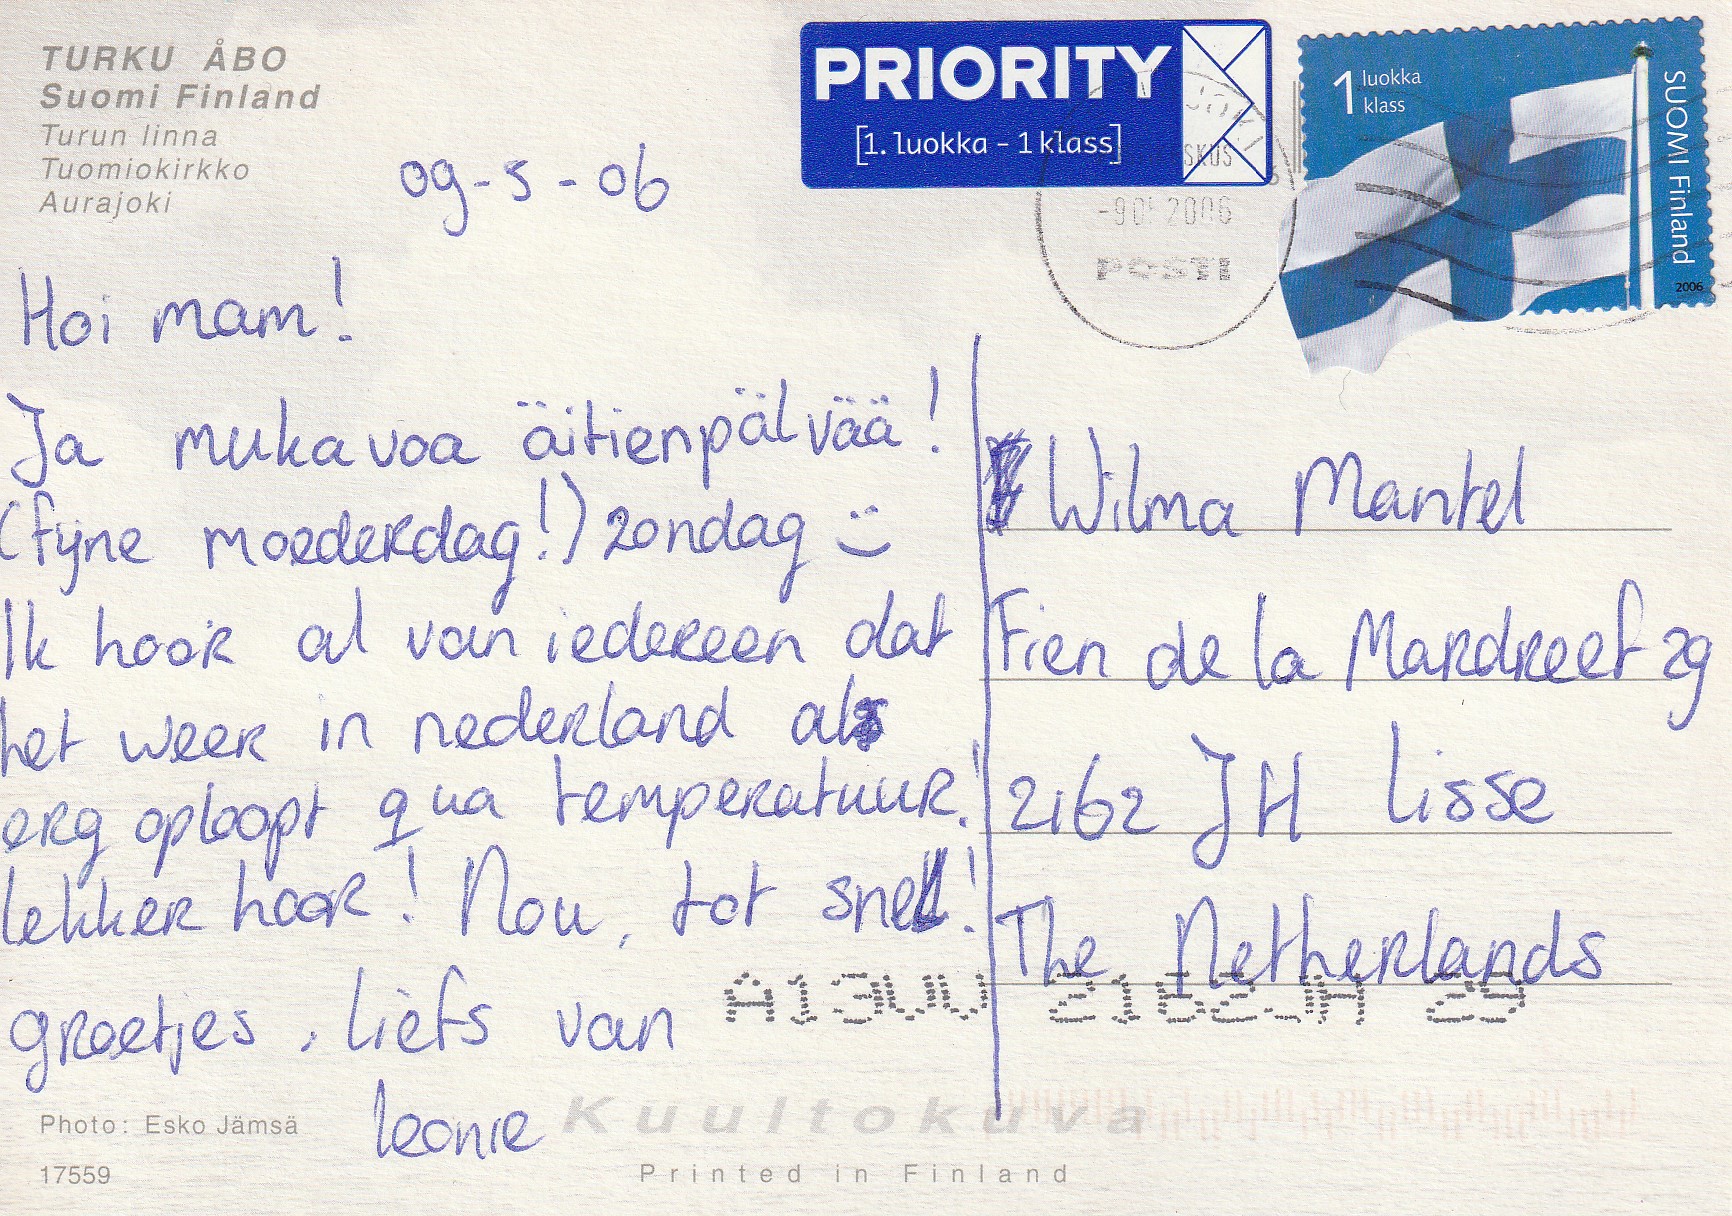 TURKU ÅBO
Suomi Finland
Turun linna
Tuomiokirkko
Aurajoki
PRIORITY
[1. luokka - 1 klass]
1 luokka
klass
SUOMI Finland
2006
SKUS
-9 2006
POSTI
09-5-06
Hoi mam!
Ja mukavoa äitienpälvää!
(fijne moederdag!) zondag
Ik hoor al van iedereen dat
het weer in nederland als
erg oploopt qua temperatuur!
lekker hoor! Nou, tot snel!
groetjes, liefs van
leonie
Wilma Mantel
Fien de la Mardreef 29
2162 JH lisse
The Netherlands
A13UU 2162JH 29
Photo: Esko Jämsä
17559
Kuultokuva
Printed in Finland